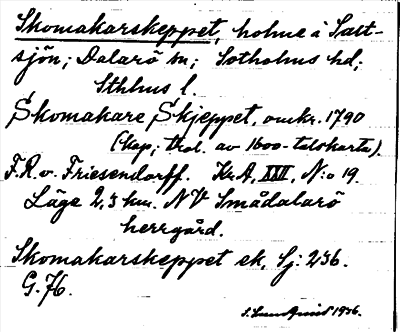 Skomakarskeppet, holme i Salt-
sjön; Dalarö sn; Sotholms hd;
Sthlms l.
Skomakare Skjeppet, omkr. 1790
(kop; trol. av 1600-talskarta).
F.R. v. Friesendorff. Kr.A, XXVI, N:o 19.
Läge 2,5 km. NV Smådalarö
herrgård.
Skomakarskeppet ek. Sj: 236.
G. 76.
S. Lundqvist 1936.